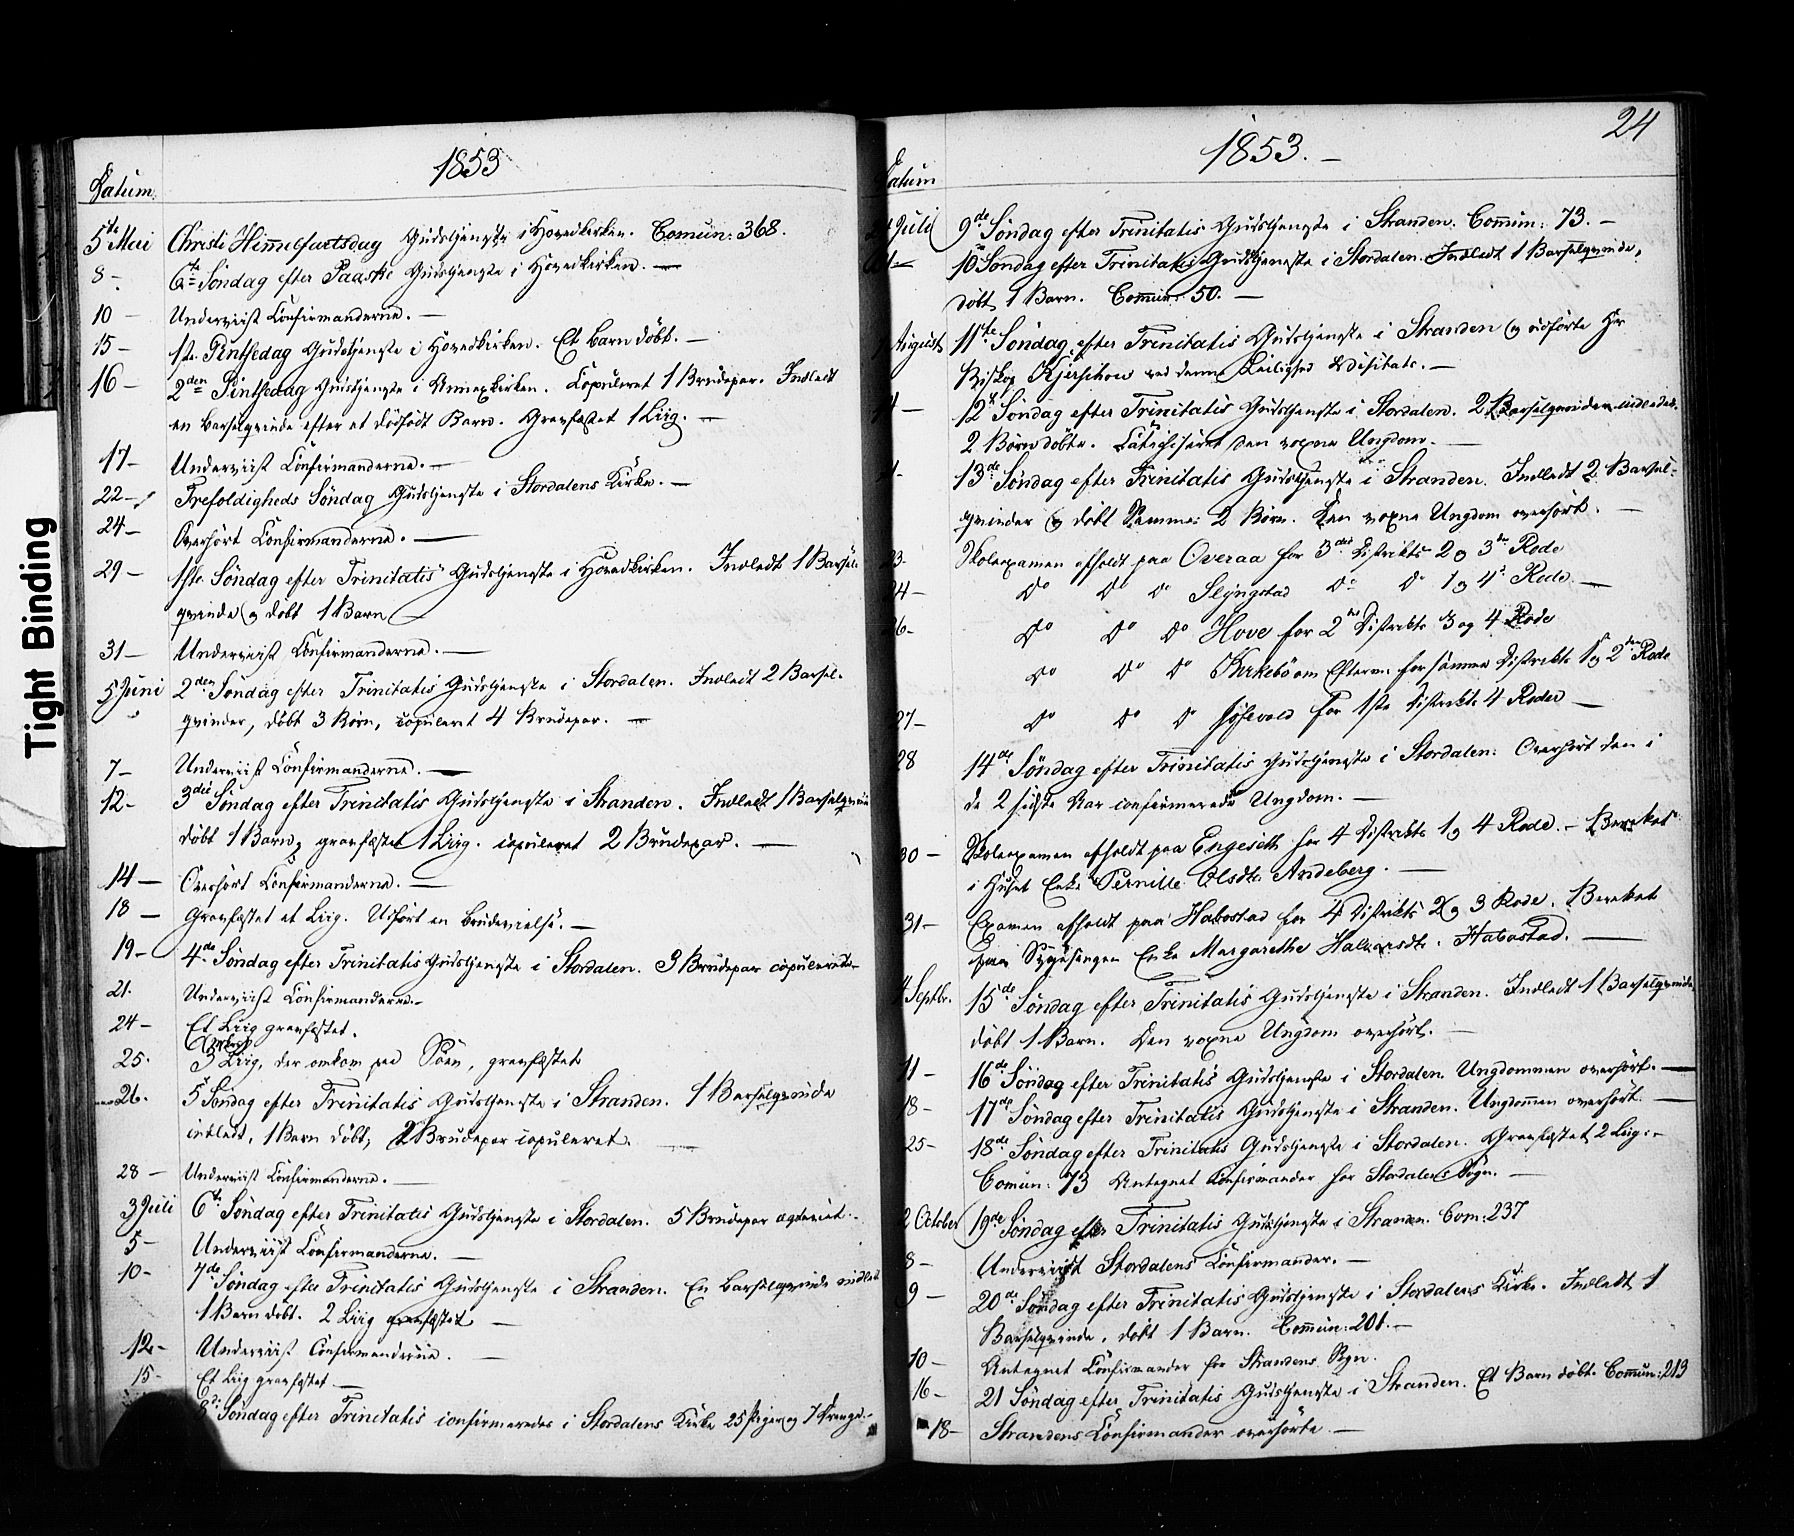 1853
Datum.
5te Mai Christi Himmelfartsdag Gudstjeneste i Hovedkirken. Comun: 368.
8 - 6te Söndag efter Paaske Gudstjeneste i Hovedkirken. —
10 - Underviist Confirmanderne. —
15 - 1ste Pintsedag Gudstjeneste i Hovedkirken. Et barn döbt. —
16 - 2den Pintsedag Gudstjeneste i Annexkirken. Copuleret 1 Brudepar. Indledt
en barselqvinde efter et dödfödt Barn. Gravfæstet 1 Liig. —
17 - Underviist Confirmanderne. —
22 - Trefoldigheds Söndag Gudstjeneste i Stordalens Kirke. —
24 - Overhört Confirmanderne. —
29 - 1ste Söndag efter Trinitatis Gudstjeneste i Hovedkirken. Indledt 1 Barsel-
qvinde og döbt 1 Barn
31 - Underviist Confirmanderne. —
5 Juni 2den Söndag efter Trinitatis Gudstjeneste i Stordalen. Indledt 2 Barsel-
qvinder, döbt 3 Börn, copuleret 4 Brudepar. —
7 - Underviist Confirmanderne. —
12 - 3die Söndag efter Trinitatis Gudstjeneste i Stranden. Indledt 1 Barselqvinde
döbt 1 Barn, gravfæstet 1 Liig. copuleret 2 Brudepar. —
14 - Overhört Confirmanderne. —
18 - Gravfæstet et Liig. Udfört en brudevielse. —
19 - 4de Söndag efter Trinitatis Gudstjeneste i Stordalen. 3 Brudepar copulerede
21. Underviist Confirmanderne. -
24 - Et Liig gravfæstet.
25. 3 Liig, der omkom paa Söen, gravfæstet
26. 5 Söndag efter Trinitatis Gudstjeneste i Stranden. 1 Barselqvinde
indledt, 1 Barn döbt, 2 Brudepar copuleret. —
28 - Underviist Confirmanderne. —
3 Juli 6te Söndag efter Trinitatis Gudstjeneste i Stordalen. 5 Brudepar ægteviet. -
5 - Underviist Confirmanderne. —
10 - 7de Söndag efter Trinitatis Gudstjeneste i Stranden. En barselqvinde indledt
1 Barn döbt. 2 Liig gravfæstet —
12 - Underviist Confirmanderne. —
15 - Et Liig gravfæstet —
8de Söndag efter Trinitatis confirmeredes i Stordalens Kirke 25 Piger og 7 Drenge. -
24
1853. —
Datum
Juli 9de Söndag efter Trinitatis Gudstjeneste i Stranden. Commun: 73. —
10 Söndag efter Trinitatis Gudstjeneste i Stordalen. Indledt 1 Barselqvinde,
döbt 1 Barn. Commun: 50. —
August 11te Söndag efter Trinitatis Gudstjeneste i Stranden og udförte Hr
Biskop Kjerschow ved denne Leilighed Visitats. —
12te Söndag efter Trinitatis Gudstjeneste i Stordalen. 2 Barselqvinder indledet.
2 Börn döbte. Catechiseret den voxne Ungdom. —
13de Söndag efter Trinitatis Gudstjeneste i Stranden. Indledt 2 Barsel-
qvinder og döbt samme 2 Börn. Den voxne Ungdom overhört. —
23. Skoleexamen afholdt paa Overaa for 3die Distrikts 2 og 3de Rode
24 - Do Do Do Slyngstad Do Do 1 og 4de Rode —
26 - Do Do Do Hove for 2det Distrikts 3 og 4 Rode
Do Do Do Kirkebö om Efterm: for samme Distrikts 1 og 2den Rode
27 - Do Do Do for 1ste Distrikts 4 Roder —
28 14de Söndag efter Trinitatis Gudstjeneste i Stordalen: Overhört den i
de 2 sidste Aar confirmerede Ungdom. —
30 - Skoleexamen afholdt paa Engeseth for 4 Distrikts 1 og 4 Rode. - Berettet
i Huset Enke Pernille Olsdtr Andeberg. —
31 - Examen afholdt paa Habostad for 4 Distrikts 2 og 3 Rode. Berettet
paa Sygesengen Enke Margarethe Halvorsdtr Habostad. —
4 Septbr. 15de Söndag efter Trinitatis Gudstjeneste i Stranden. Indledt 1 Barselqvinde
döbt 1 Barn. Den voxne Ungdom overhört. —
11 - 16de Söndag efter Trinitatis Gudstjeneste i Stordalen. Ungdommen overhört. —
18 - 17de Söndag efter Trinitatis Gudstjeneste i Stranden. Ungdommen overhört. —
25 - 18de Söndag efter Trinitatis Gudstjeneste i Stordalen. Gravfæstet 2 Liig. -
Comun: 73 Antegnet Confirmander for Stordalens Sogn. —
2 October 19de Söndag efter Trinitatis Gudstjeneste i Stranden. Com: 237
8 - Underviist Stordalens Confirmander. —
9 - 20de Söndag efter Trinitatis Gudstjeneste i Stordalens Kirke. Indledt 1
Barselqvinde, döbt 1 Barn. Commun: 201. —
10 - Antegnet Confirmander for Strandens Sogn.
16 - 21 Söndag efter Trinitatis Gudstjeneste i Stranden. Et Barn döbt. Commun: 213
18 - Strandens Confirmander overhörte —
Tight Binding